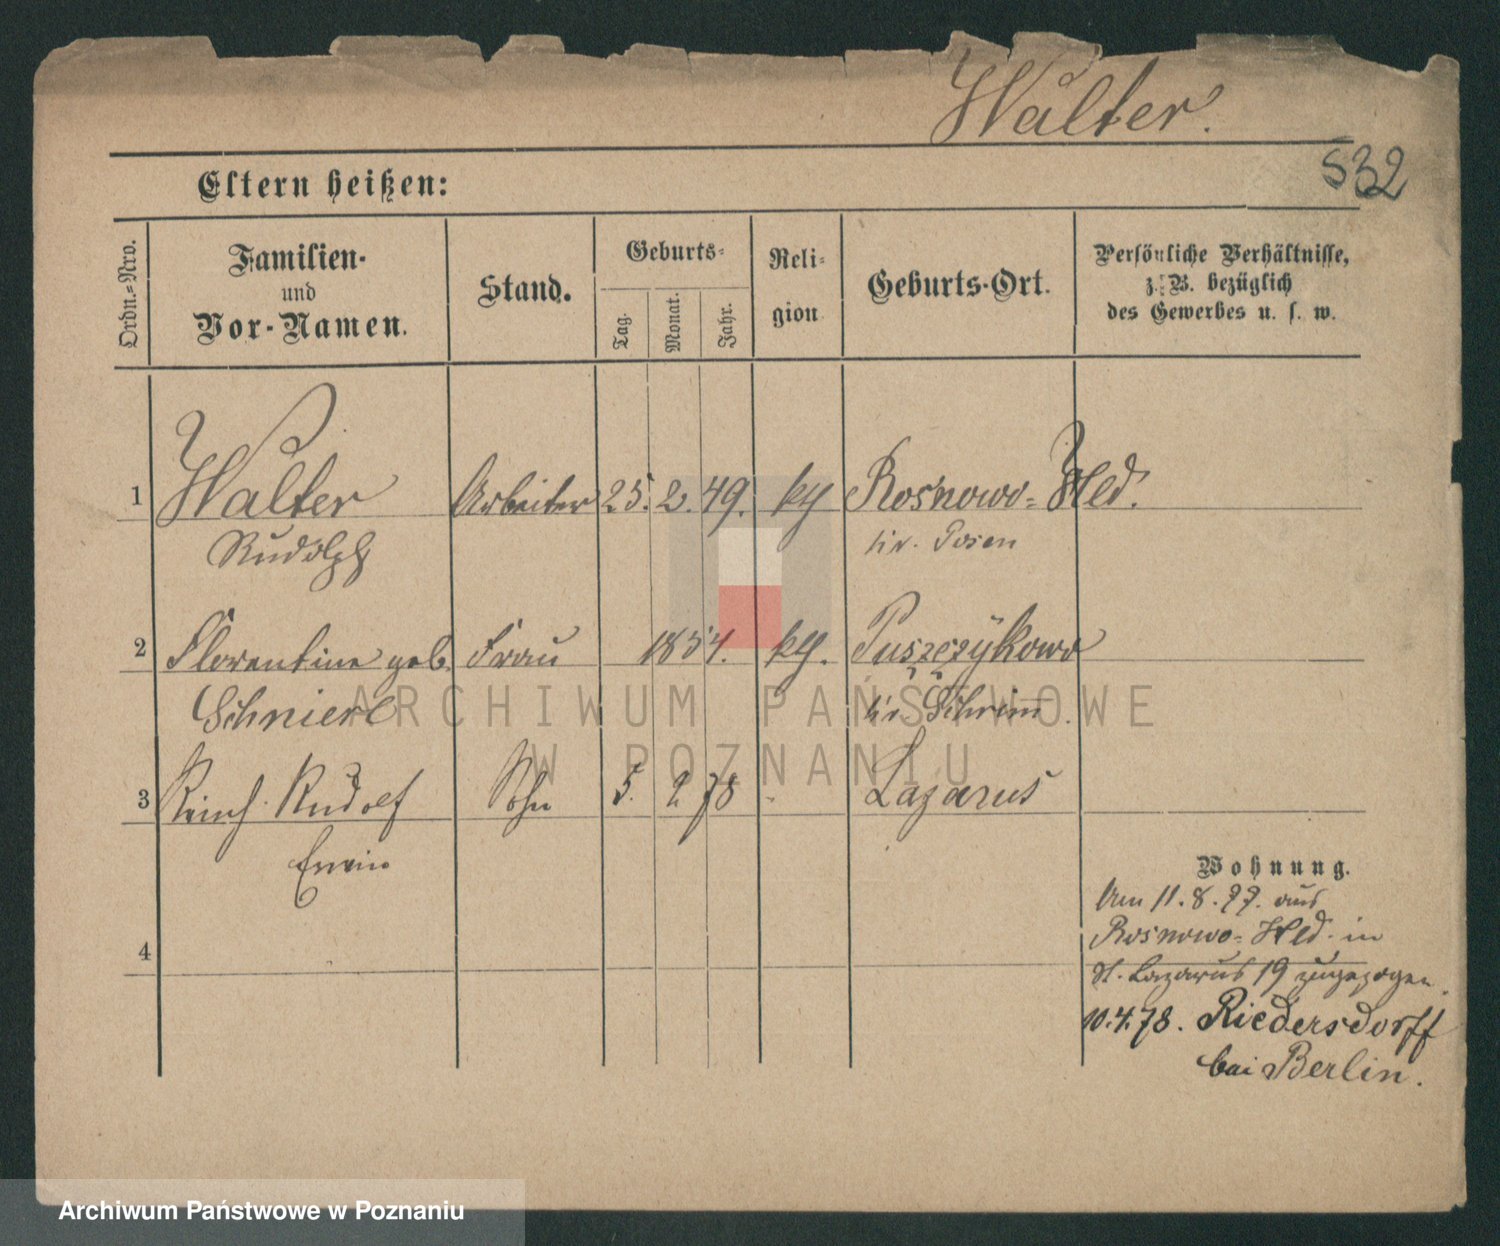 Walter.
532
Eltern heißen:
Ordn.-Nro.
Familien-
und
Vor-Namen.
Stand.
Geburts-
Tag.
Monat.
Jahr.
Reli-
gion
Geburts-Ort.
Persönliche Verhältnisse,
z. B. bezüglich
des Gewerbes u. s. w.
1 Walter Arbeiter 25. 2. 49. kg Rosnowo-Hld.
Rudolph Kr. Posen
2 Florentine geb. Frau 1854. kg. Puszczykowo
Schnierl Kr. Schrim
3 Reinh. Rudolf Sohn 5. 2 78 Lazarus
Erwin
4
Wohnung.
Am 11. 8. 77. aus
Rosnowo-Hld. in
St. Lazarus 19 zugezogen.
10.4.78. Riedersdorff
bei Berlin.
ARCHIWUM PAŃSTWOWE
W POZNANIU
Archiwum Państwowe w Poznaniu